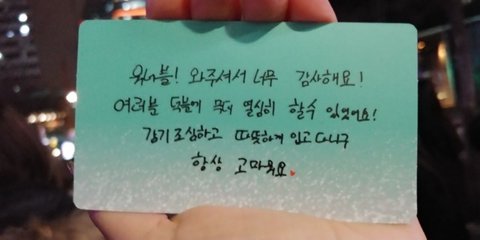 위너블! 와주셔서 너무 감사해요!
여러분 덕분에 무대 열심히 할수 있었어요!
감기 조심하고 따뜻하게 입고 다니구
항상 고마워요